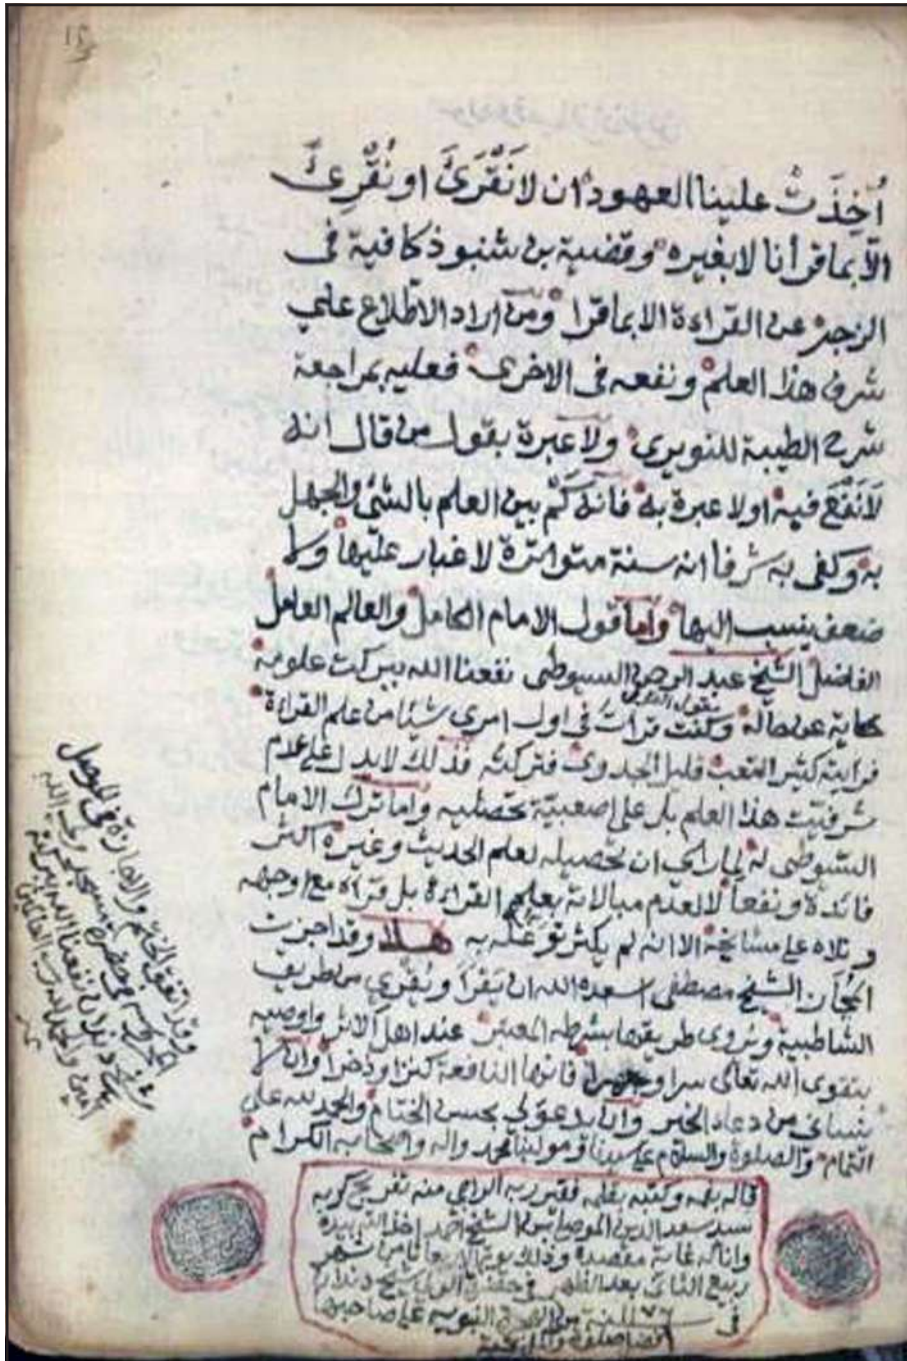 أُخِذَتْ علينا العهود ان لا نَقْرَئَ او نُقْرِئَ
الا بما قرأنا لا بغيره وقضية بن شنبوذ كافية فى
الزجر عن القراءة الا بما قرا ومن اراد الاطلاع على
شرف هذا العلم ونفعه فى الاخرى فعليه بمراجعة
شرح الطيبة للنويرى ولا عبرة بقول من قال انه
لا نَفْعَ فيه اولا عبرة به فانه كَمْ بين العلم بالشئ والجهل
به وكفى به شرفا انه سنة متواترة لا غبار عليها ولا
ضعف ينسب اليها واما قول الامام الكامل والعالم العامل
الفاضل الشيخ عبد الرحمن السيوطى نفعنا الله ببركت علومه
حكاية عن حاله وكنت قرات فى اول امرى شيئا من علم القراءة
فرايته كثير التعب قليل الجدوى فتركته فذلك لا يدل على عدم
شرفيت هذا العلم بل على اصعبية تحصليه واما ترك الامام
السيوطى له لما راى ان تحصيله لعلم الحديث وغيره اكثر
فائدة ونفعا لا لعدم مبالاته بعلم القراءة بل قراه مع اوجهه
وتلاه على مشايخه الا انه لم يكثر توغله به هذا وقد اجزت
المجاز الشيخ مصطفى اسعده الله ان يَقْرَأ ويُقْرِى من طريق
الشاطبية ويروى طريقها بشرطه المعتبر عند اهل الاثر واوصيه
بتقوى الله تعالى سرا وجهرا فانها النافعة كنزا وذخرا وان لا
ينسانى من دعاء الخير وان يدعو لى بحسن الختام والحمد لله على
التمام والصلوة والسلام على سيدنا ومولينا محمد واله واصحابه الكرام
قاله بفمه وكتبه بقلمه فقير ربه الراجى منه تفريج كربه
سيد سعد الدين الموصلى بن الشيخ احمد
واناله غاية مقصده وذلك يوم الاربعا ثامن شهر
ربيع الثانى بعد الظهر فى حضرة
فى سنة من الهجرة النبوية على صاحبها
افضل
وقد اتفق الختم والاجازة فى الموصل
المحروسة فى حضرة
نفعنا الله ببركته
امين والحمد لله رب العالمين